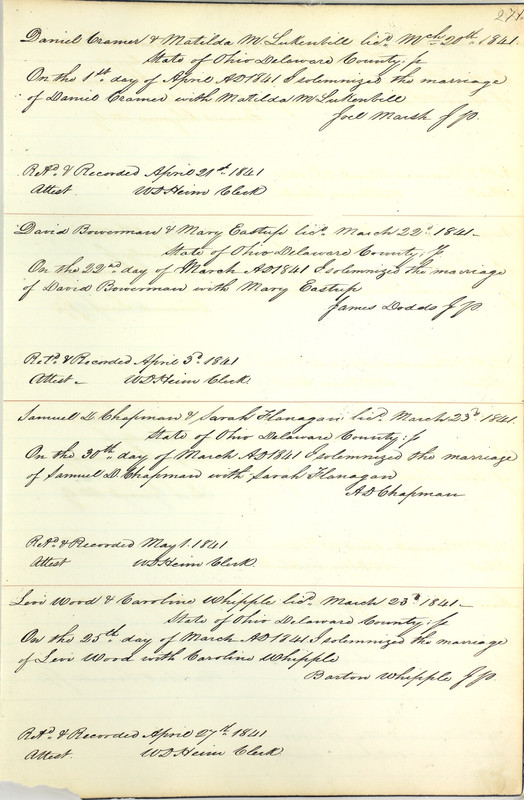 271.
Daniel Cramer & Matilda M Lukenbill licd. Mch 20th 1841.
State of Ohio Delaware County: ss
On the 1st day of April AD 1841 I solemnized the marriage
of Daniel Cramer with Matilda M Lukenbill
Joel Marsh J P.
Retd. & Recorded April 21st 1841
Attest. W D Heim Clerk
David Bowerman & Mary Eastup licd. March 22d. 1841-
State of Ohio Delaware County: ss
On the 22nd day of March AD 1841 I solemnized the marriage
of David Bowerman with Mary Eastup
James Dodds J P.
Retd. & Recorded April 5th. 1841
Attest - W D Heim Clerk.
Samuel D Chapman & Sarah Flanagan licd. March 23d 1841.
State of Ohio Delaware County: ss
On the 30th day of March AD 1841 I solemnized the marriage
of Samuel D. Chapman with Sarah Flanagan
A D Chapman
Retd. & Recorded May 1. 1841
Attest W D Heim Clerk.
Levi Wood & Caroline Whipple licd. March 23d 1841-
State of Ohio Delaware County: ss
On the 25th day of March AD 1841 I solemnized the marriage
of Levi Wood with Caroline Whipple
Barton Whipple J P.
Retd. & Recorded April 27th 1841
Attest. W D Heim Clerk.